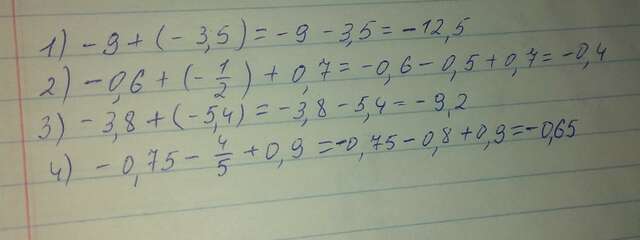 1) -9+(-3,5)=-9-3,5=-12,5
2) -0,6+(-1/2)+0,7=-0,6-0,5+0,7=-0,4
3) -3,8+(-5,4)=-3,8-5,4=-9,2
4) -0,75-4/5+0,9=-0,75-0,8+0,9=-0,65